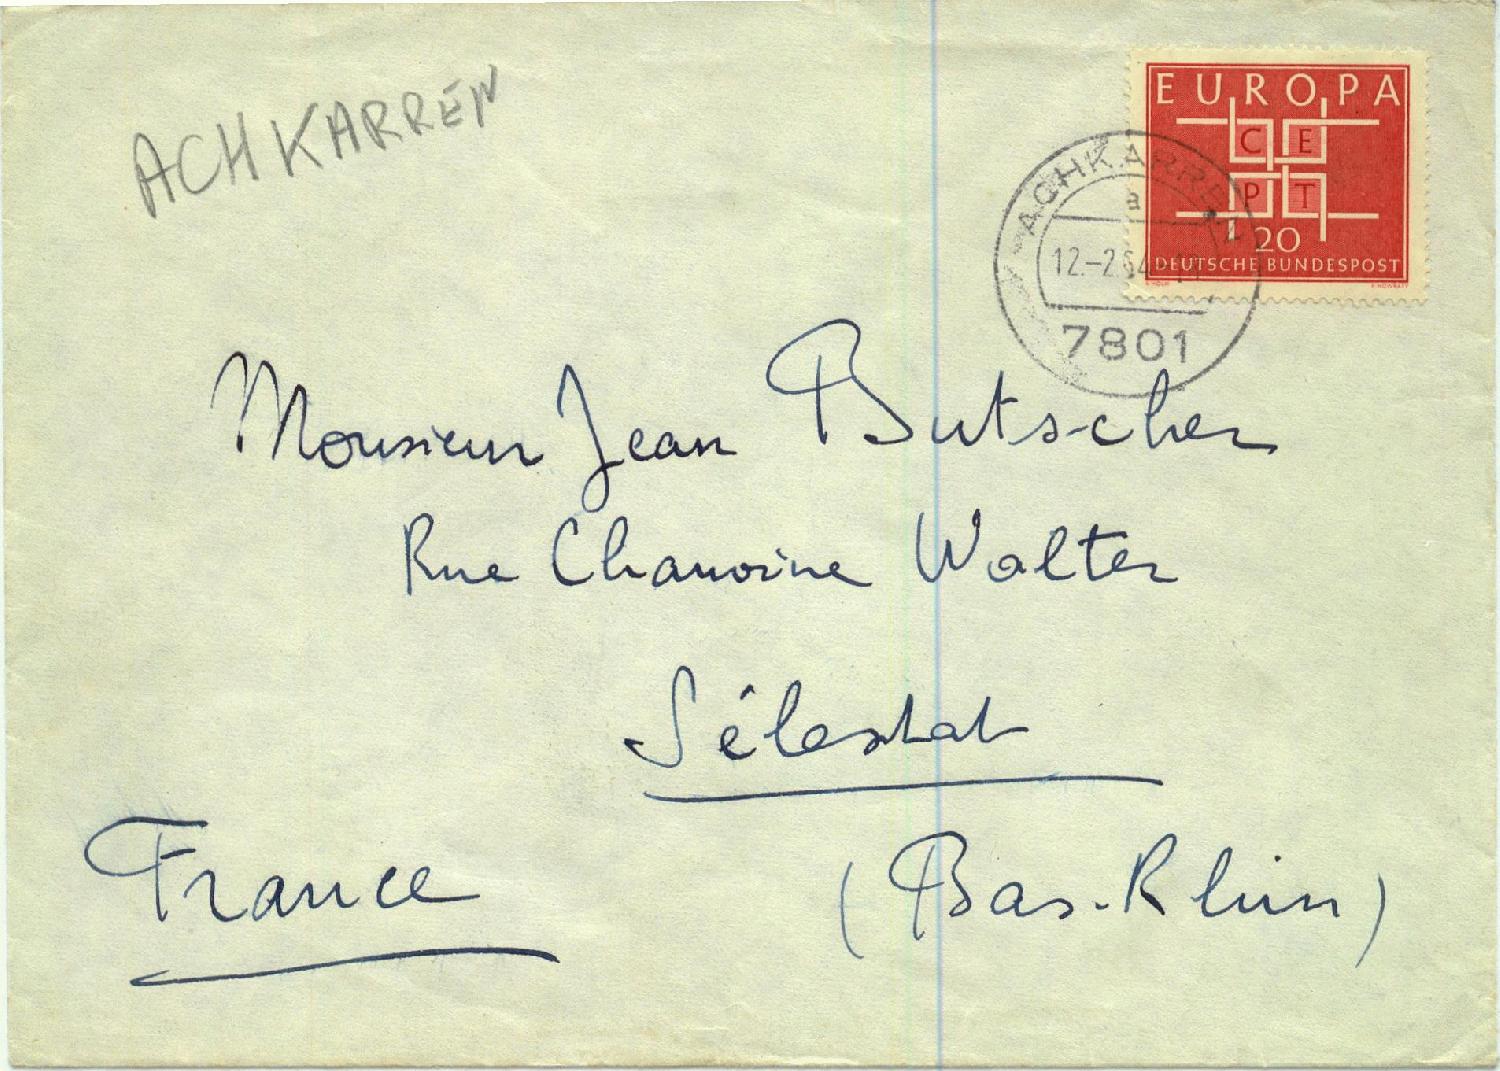 ACHKARREN
EUROPA
C E
P T
20
DEUTSCHE BUNDESPOST
ACHKARREN
a
12.-2.64
7801
Monsieur Jean Butscher
Rue Chanoine Walter
Sélestat
France
(Bas-Rhin)